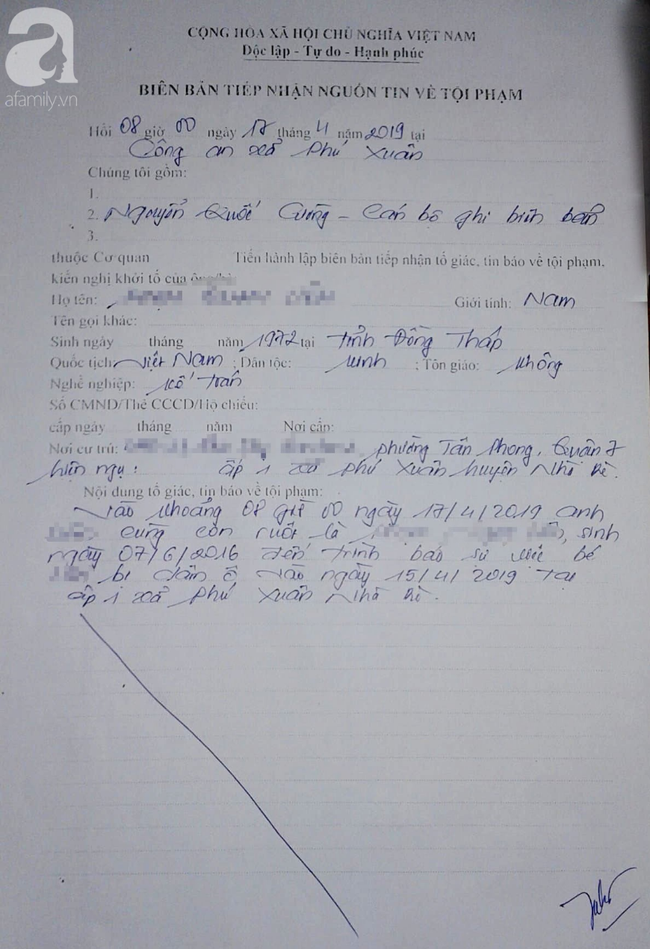 a
afamily.vn
CỘNG HÒA XÃ HỘI CHỦ NGHĨA VIỆT NAM
Độc lập - Tự do - Hạnh phúc
BIÊN BẢN TIẾP NHẬN NGUỒN TIN VỀ TỘI PHẠM
Hồi 08 giờ 00 ngày 17 tháng 4 năm 2019 tại
Công an xã Phú Xuân
Chúng tôi gồm:
1.
2. Nguyễn Quốc Cường - Cán bộ ghi biên bản
3.
thuộc Cơ quan Tiến hành lập biên bản tiếp nhận tố giác, tin báo về tội phạm,
kiến nghị khởi tố của ông/bà:
Họ tên: Giới tính: Nam
Tên gọi khác:
Sinh ngày tháng năm 1972 tại Tỉnh Đồng Tháp
Quốc tịch: Việt Nam ; Dân tộc: Kinh ; Tôn giáo: Không
Nghề nghiệp:
Số CMND/Thẻ CCCD/Hộ chiếu:
cấp ngày tháng năm Nơi cấp:
Nơi cư trú: phường Tân Phong, Quận 7
Hiện ngụ: ấp 1 xã Phú Xuân huyện Nhà Bè.
Nội dung tố giác, tin báo về tội phạm:
Vào khoảng 08 giờ 00 ngày 17/4/2019 anh
cùng con ruột là , sinh
ngày 07/6/2016 đến trình báo sự việc bé
bị dâm ô vào ngày 15/4/2019 tại
ấp 1 xã Phú Xuân Nhà Bè.